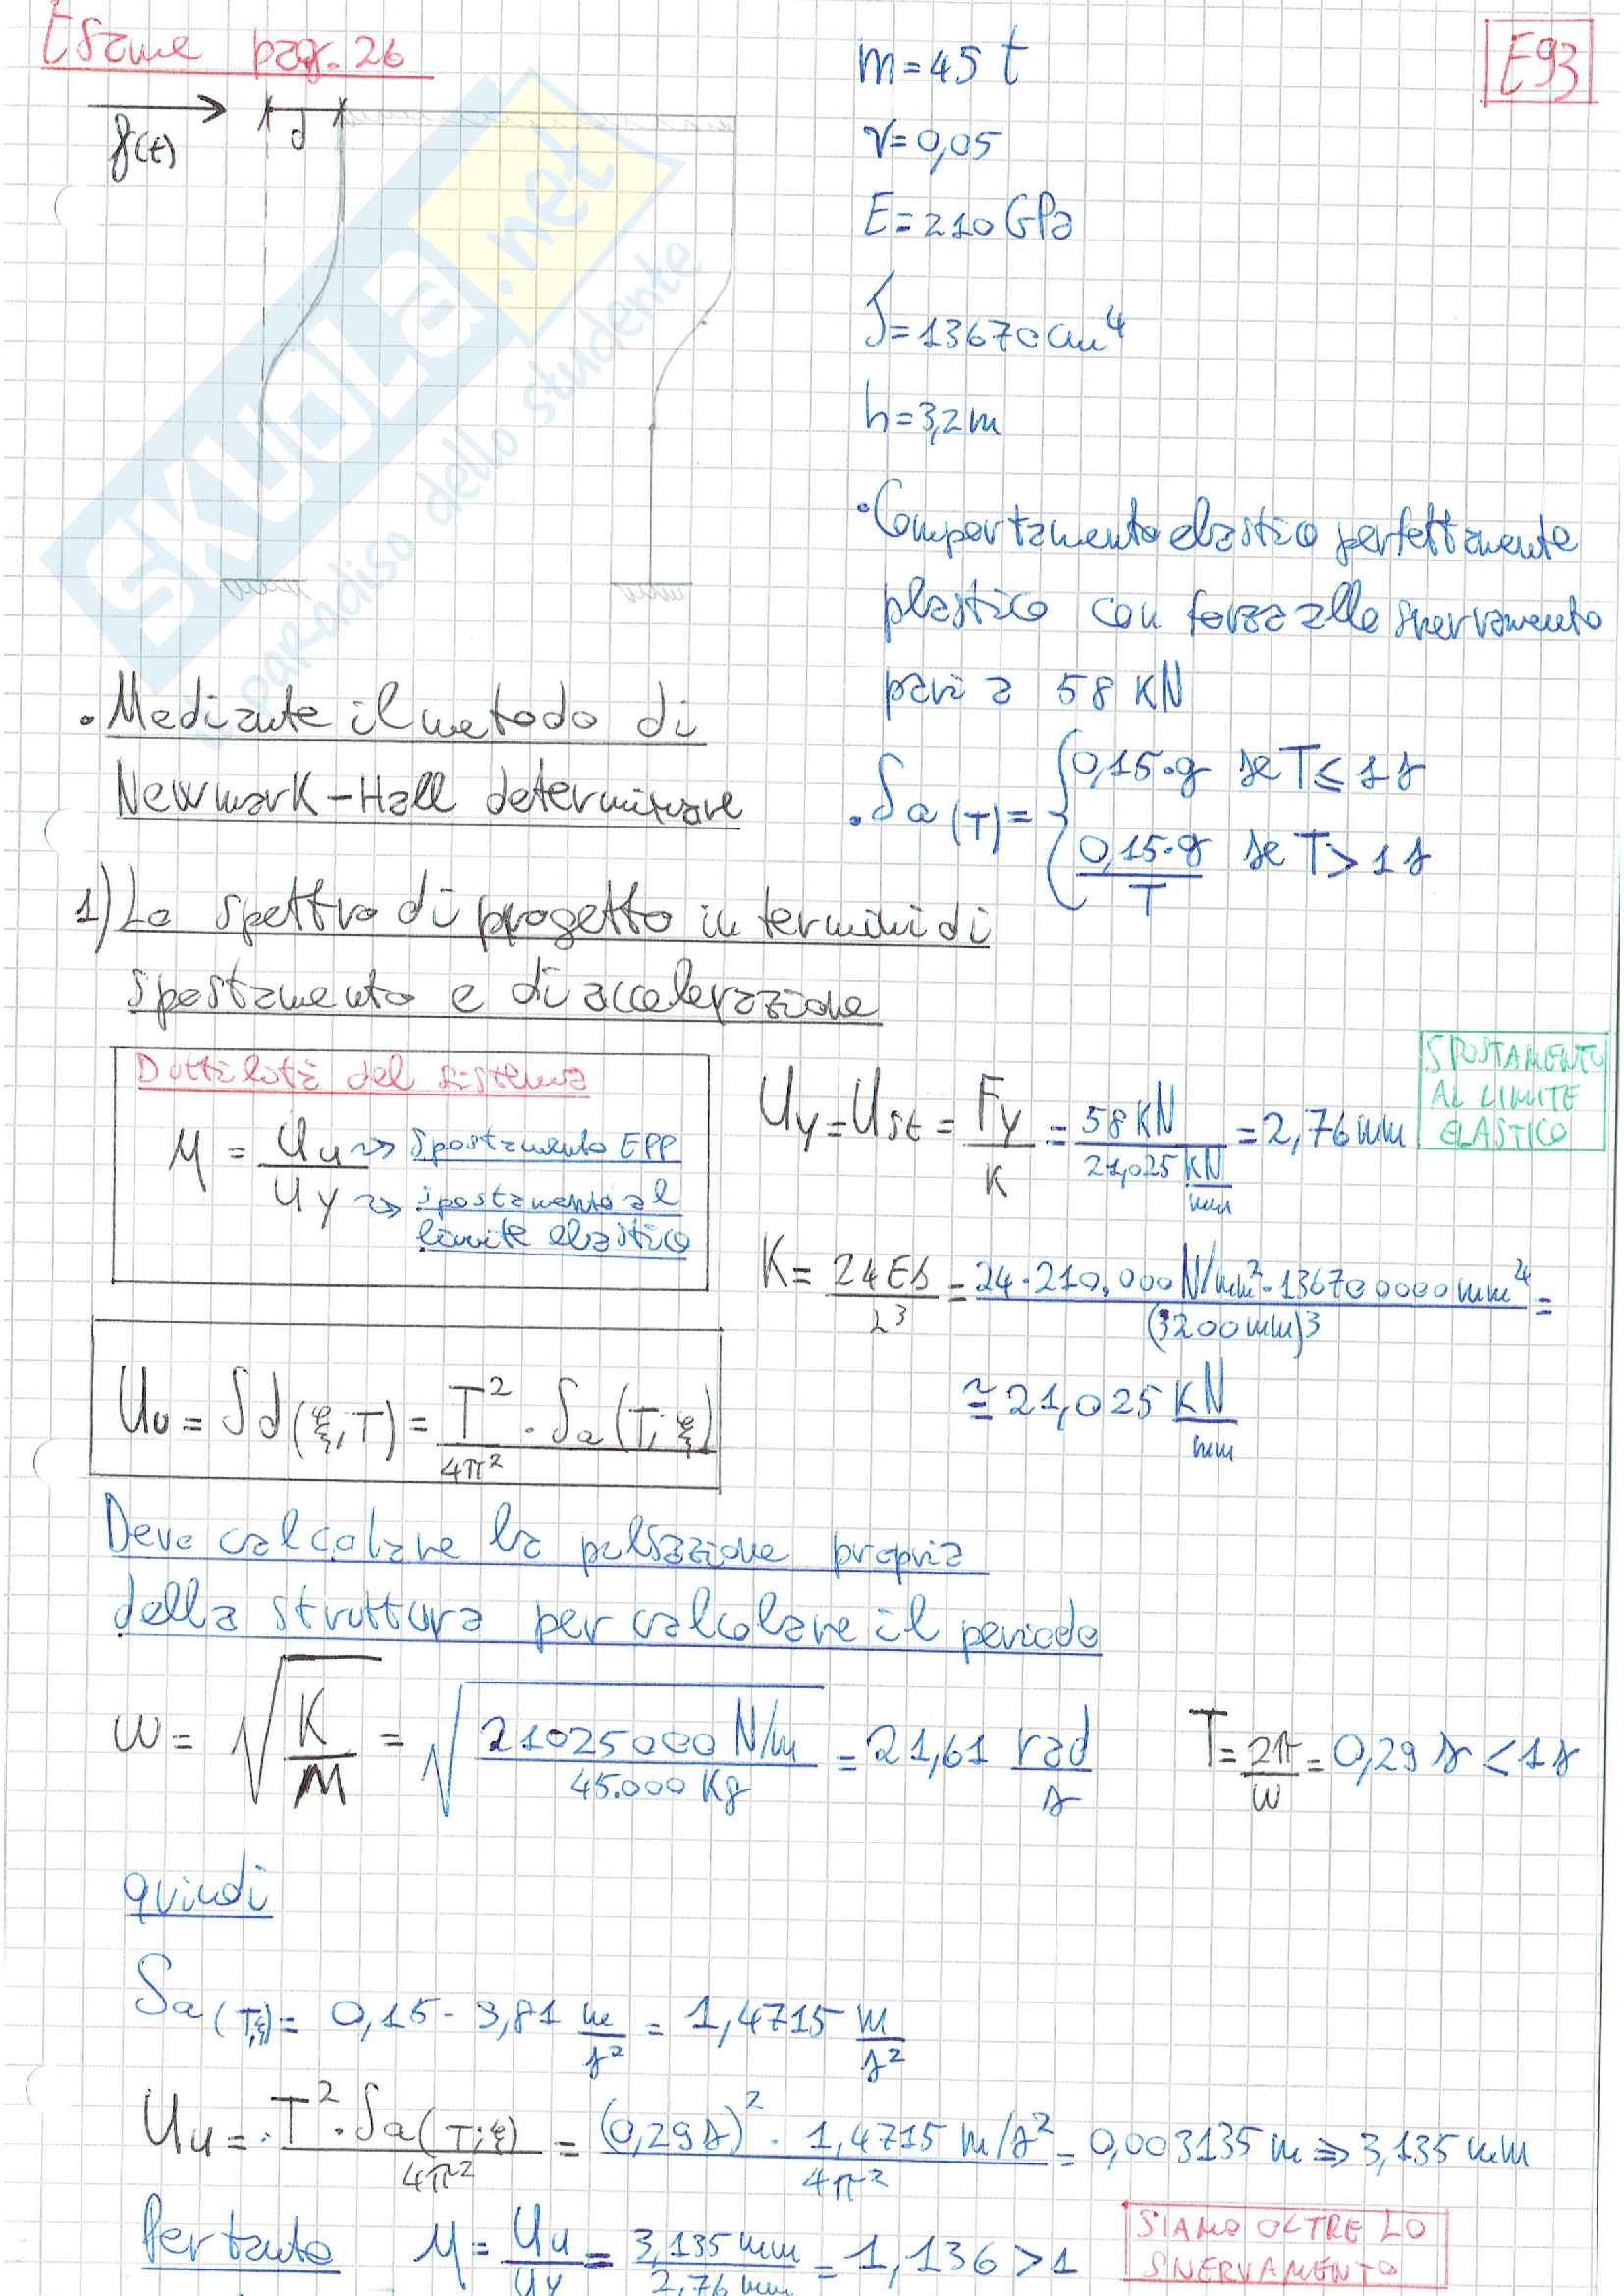 Esame pag. 26
E93
f(t)
d
m=45 t
ν=0,05
E=210 GPa
J=13670 cm⁴
h=3,2m
• Comportamento elastico perfettamente
plastico con forza allo snervamento
pari a 58 KN
• Sa(T)= { 0,15·g se T≤1s
0,15·g/T se T>1s
SKUOLA.net
paradiso dello studente
• Mediante il metodo di
Newmark-Hall determinare
1) Lo spettro di progetto in termini di
spostamento e di accelerazione
Duttilità del sistema
μ = Uu/Uy
Uu → Spostamento EPP
Uy → spostamento al
limite elastico
Uy=Ust= Fy/K = 58KN / 21,025 KN/mm = 2,76mm
SPOSTAMENTO
AL LIMITE
ELASTICO
K= 24EJ/L³ = 24·210.000N/mm²·136700000mm⁴ / (3200mm)³ =
≅ 21,025 KN/mm
Uu= Sd(ξ,T)= T²/4π² · Sa(T;ξ)
Devo calcolare la pulsazione propria
della struttura per calcolare il periodo
ω= √(K/M) = √(21025000 N/m / 45.000 Kg) = 21,61 rad/s
T= 2π/ω = 0,29 s < 1s
quindi
Sa(T;ξ)= 0,15· 9,81 m/s² = 1,4715 m/s²
Uu= T²·Sa(T;ξ)/4π² = (0,29s)² · 1,4715 m/s² / 4π² = 0,003135 m ⇒ 3,135 mm
Pertanto μ= Uu/Uy = 3,135mm/2,76mm = 1,136 >1
SIAMO OLTRE LO
SNERVAMENTO